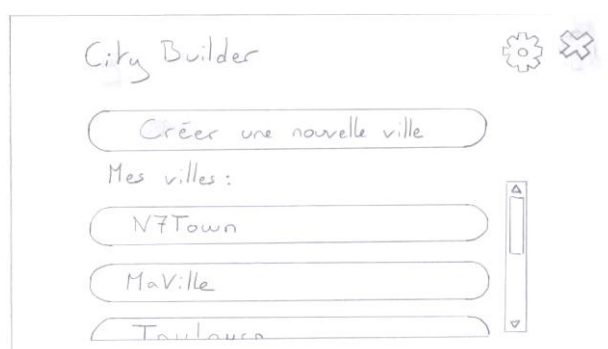 City Builder
Créer une nouvelle ville
Mes villes :
N7Town
MaVille